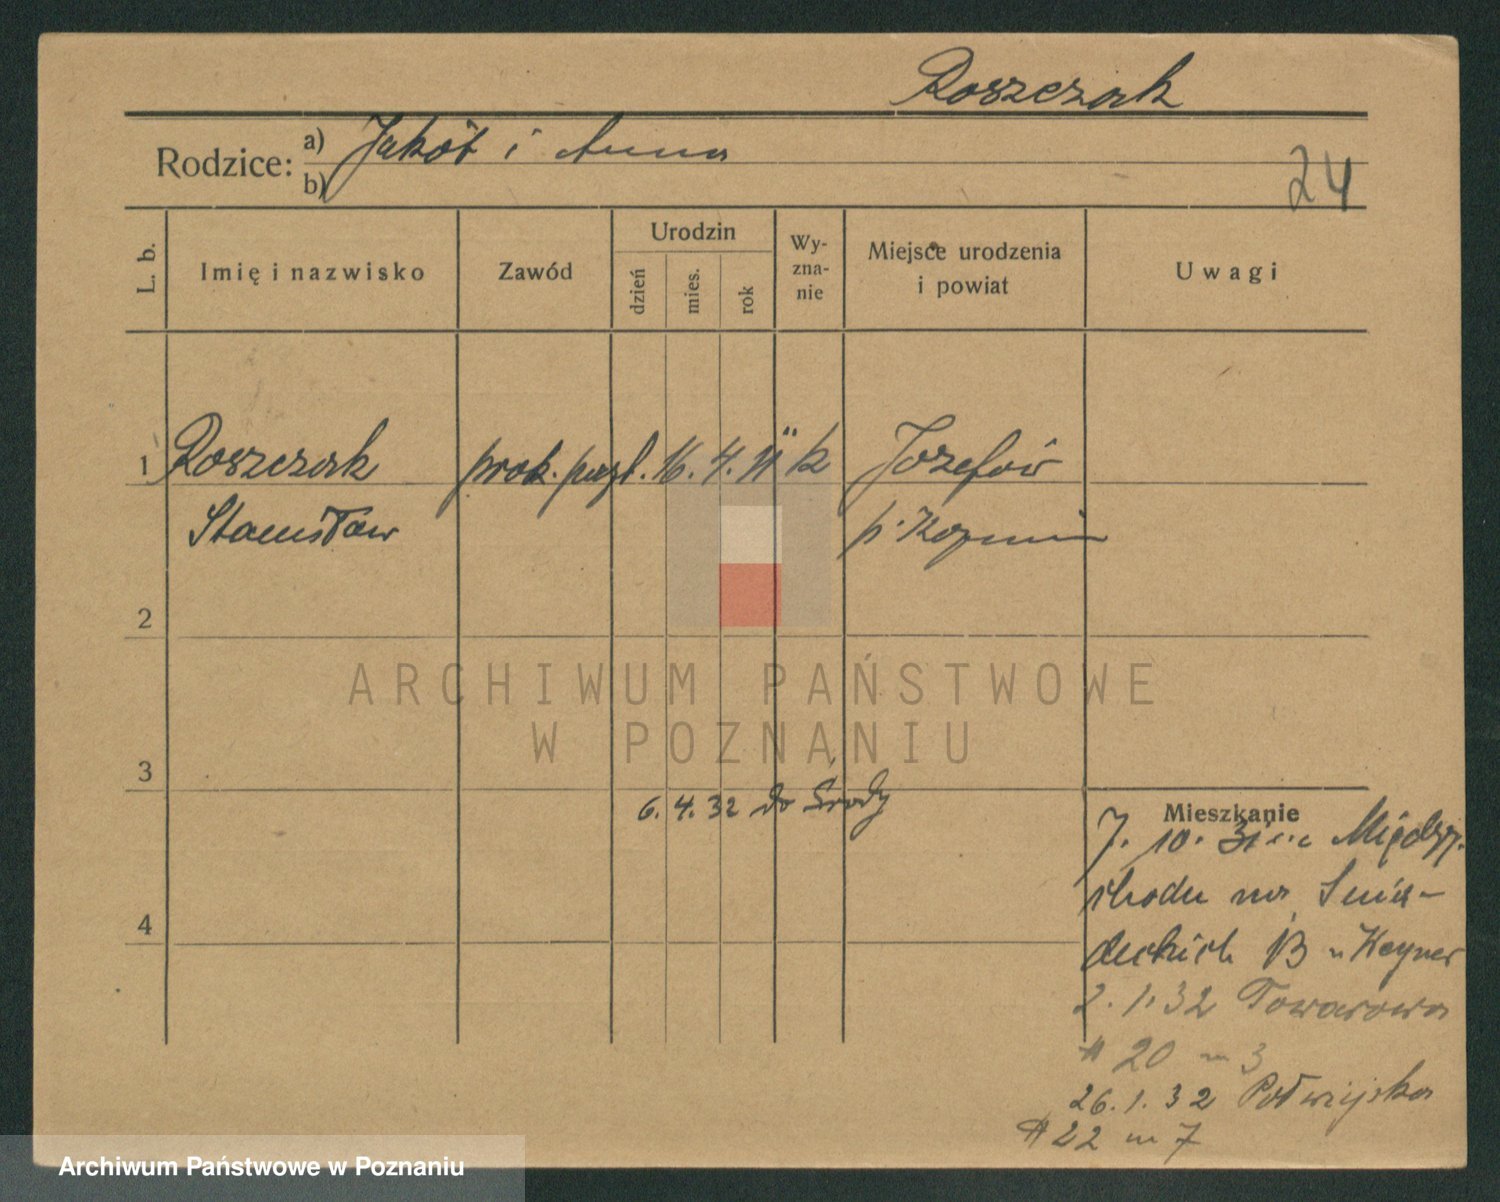 Roszczak
Rodzice: a) Jakób i Anna
b)
24
L. b.
Imię i nazwisko
Zawód
Urodzin
dzień
mies.
rok
Wy-
zna-
nie
Miejsce urodzenia
i powiat
Uwagi
1 Roszczak prak. 16. 4. 11 k Józefów
Stanisław p. Koźmin
2
ARCHIWUM PAŃSTWOWE
W POZNANIU
3
6. 4. 32 do Środy
Mieszkanie
7. 10. 31 Między-
chodu na Śnia-
deckich 13 u
2. 1. 32 Towarowa
# 20 m 3
26. 1. 32 Półwiejska
# 22 m 7
4
Archiwum Państwowe w Poznaniu